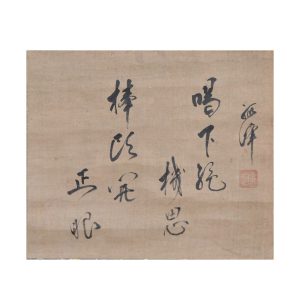 喝下絶
機思
棒頭開
正眼